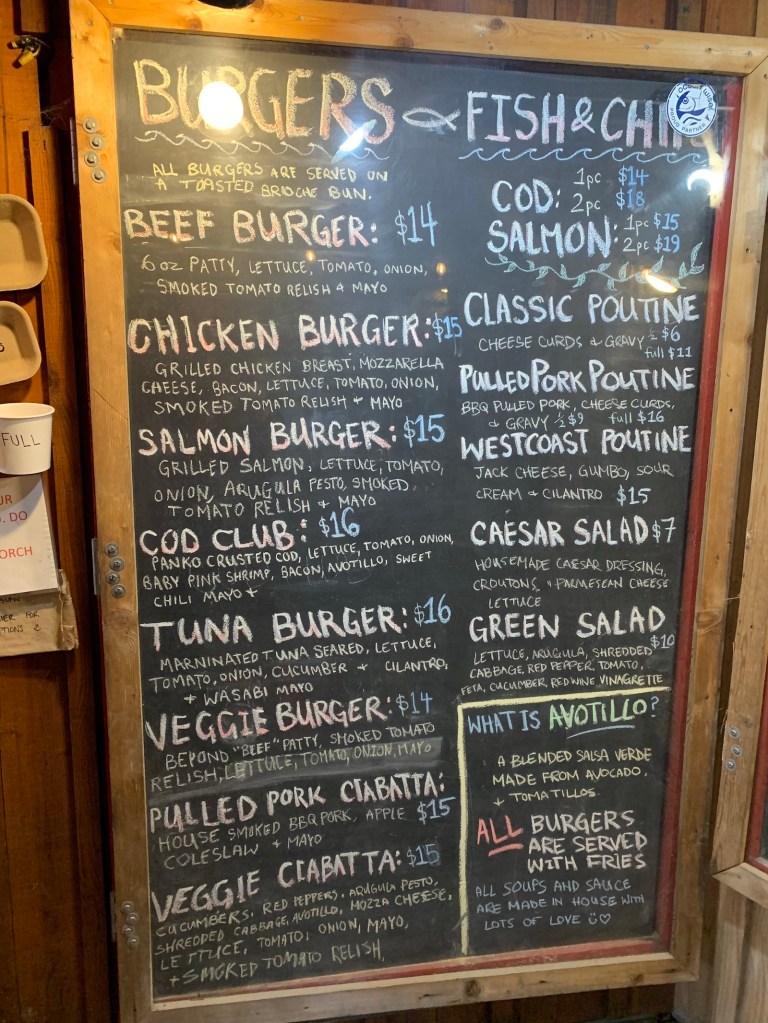 BURGERS
ALL BURGERS ARE SERVED ON
A TOASTED BRIOCHE BUN.
BEEF BURGER: $14
6 oz PATTY, LETTUCE, TOMATO, ONION,
SMOKED TOMATO RELISH + MAYO
CHICKEN BURGER: $15
GRILLED CHICKEN BREAST, MOZZARELLA
CHEESE, BACON, LETTUCE, TOMATO, ONION,
SMOKED TOMATO RELISH + MAYO
SALMON BURGER: $15
GRILLED SALMON, LETTUCE, TOMATO,
ONION, ARUGULA PESTO, SMOKED
TOMATO RELISH + MAYO
COD CLUB: $16
PANKO CRUSTED COD, LETTUCE, TOMATO, ONION,
BABY PINK SHRIMP, BACON, AVOTILLO, SWEET
CHILI MAYO +
TUNA BURGER: $16
MARNINATED TUNA SEARED, LETTUCE,
TOMATO, ONION, CUCUMBER + CILANTRO,
+ WASABI MAYO
VEGGIE BURGER: $14
BEPOND "BEEF" PATTY, SMOKED TOMATO
RELISH, LETTUCE, TOMATO, ONION, MAYO
PULLED PORK CIABATTA:
HOUSE SMOKED BBQ PORK, APPLE $15
COLESLAW + MAYO
VEGGIE CIABATTA: $15
CUCUMBERS, RED PEPPERS, ARUGULA PESTO,
SHREDDED CABBAGE, AVOTILLO, MOZZA CHEESE,
LETTUCE, TOMATO, ONION, MAYO,
+ SMOKED TOMATO RELISH,
FISH & CHI
COD: 1pc $14
2pc $18
SALMON: 1pc $15
2pc $19
CLASSIC POUTINE
CHEESE CURDS + GRAVY ½ $6
full $11
PULLED PORK POUTINE
BBQ PULLED PORK, CHEESE CURDS,
+ GRAVY ½ $9 full $16
WESTCOAST POUTINE
JACK CHEESE, GUMBO, SOUR
CREAM + CILANTRO $15
CAESAR SALAD $7
HOUSEMADE CAESAR DRESSING,
CROUTONS, + PARMESEAN CHEESE
LETTUCE
GREEN SALAD
$10
LETTUCE, ARUGULA, SHREDDED
CABBAGE, RED PEPPER, TOMATO,
FETA, CUCUMBER, RED WINE VINAGRETTE
WHAT IS AVOTILLO?
A BLENDED SALSA VERDE
MADE FROM AVOCADO,
+ TOMATILLOS.
ALL BURGERS
ARE SERVED
WITH FRIES
ALL SOUPS AND SAUCE
ARE MADE IN HOUSE WITH
LOTS OF LOVE
OCEAN WISE
PARTNER
FULL
UR
. DO
ORCH